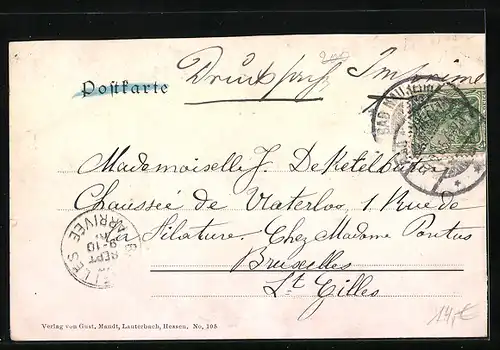 Postkarte
Drucksache Imprimé
BAD NAUHEIM
Mademoiselle J. De Ketelbutter
Chaussée de Waterloo, 1 Rue de
la Filature. Chez Madame Pontus
Bruxelles
St Gilles
ARRIVÉE
9-10
SEPT
14,€
Verlag von Gust. Mandt, Lauterbach, Hessen. No. 105